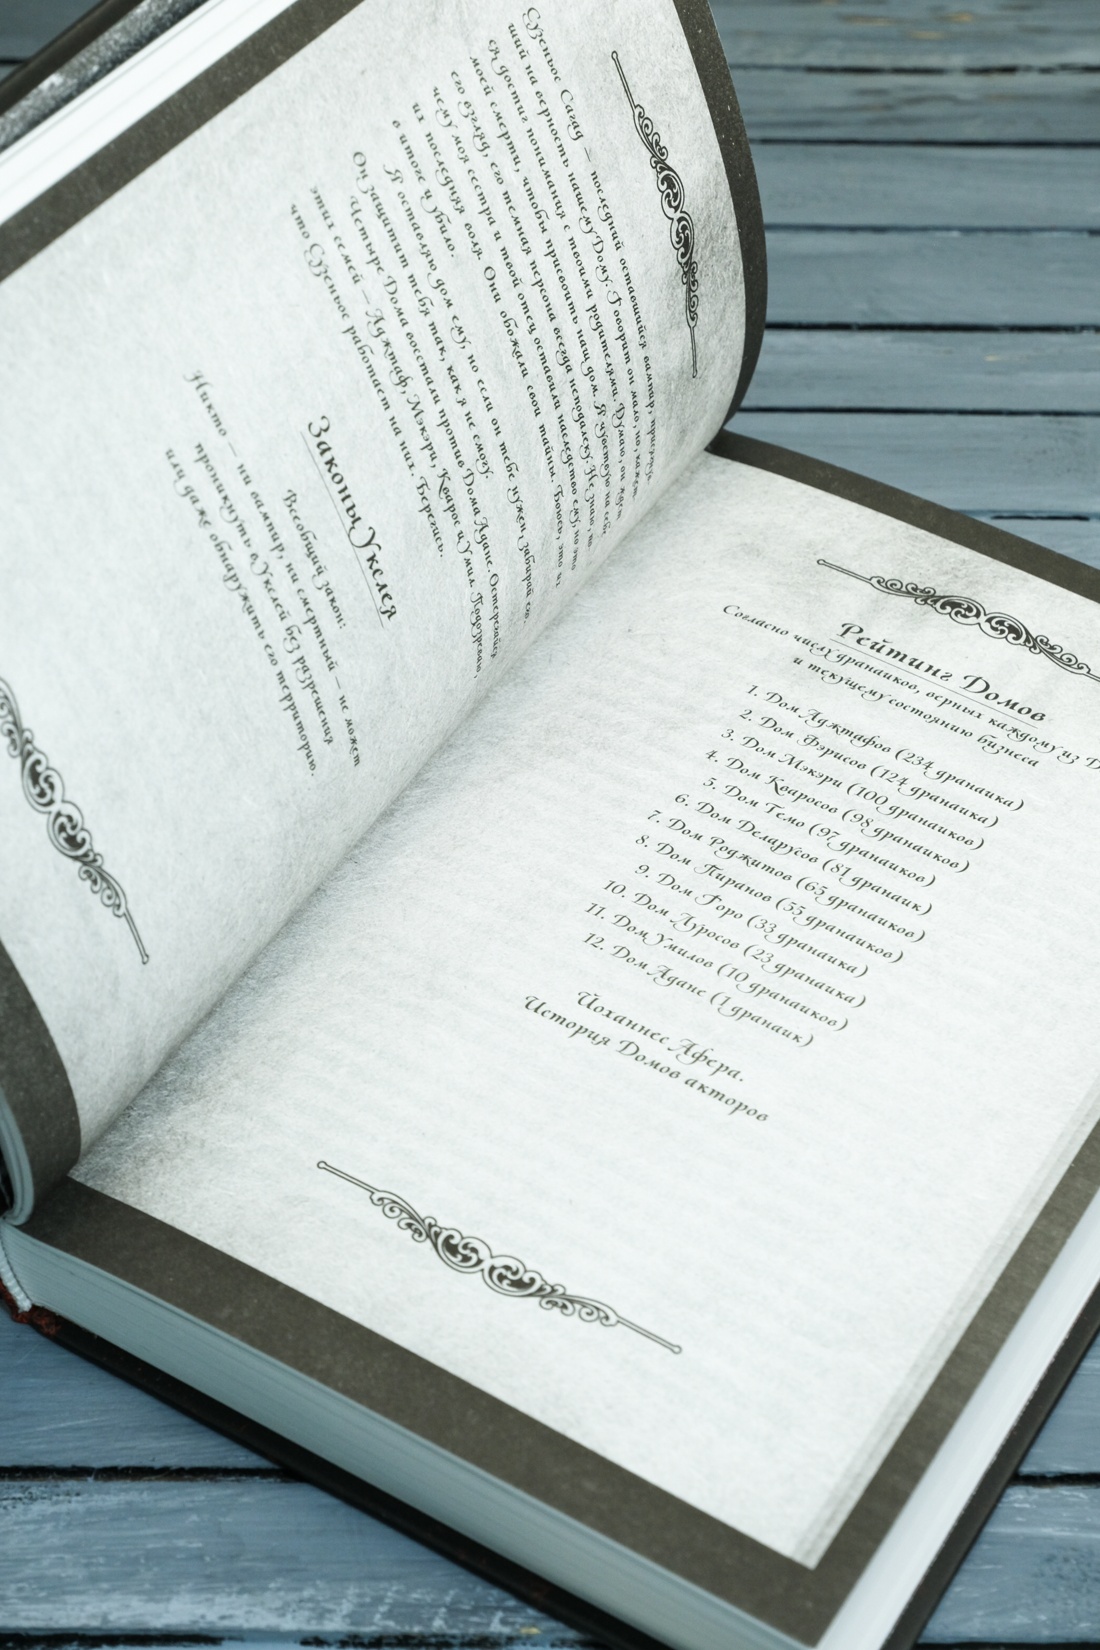 Сузеньос Сагад — последний оставшийся вампир,
ший на верность нашему Дому. Говорит он мало, но, кажет-
ся, достиг понимания с твоими родителями. Думаю, он ждет
моей смерти, чтобы присвоить наш дом. Я чувствую на себе
его взгляд, его темная персона всегда неподалеку. Не знаю, по-
чему моя сестра и твой отец оставили наследство ему, но это
их последняя воля. Они обожали свои тайны. Боюсь, это их
в итоге и убило.
Я оставляю дом ему, но если он тебе нужен, забирай его.
Он защитит тебя так, как я не смогу.
Четыре Дома восстали против Дома Адане. Остерегайся
этих семей — Аджтаф, Мэкэри, Кварос и Умил. Подозреваю,
что Сузеньос работает на них. Берегись.
Законы Укслея
Всеобщий закон:
Никто — ни вампир, ни смертный — не может
проникнуть в Укслей без разрешения
или даже обнаружить его территорию.
Рейтинг Домов
Согласно числу дранаиков, верных каждому из
и текущему состоянию бизнеса
1. Дом Аджтафов (234 дранаика)
2. Дом Фэрисов (124 дранаика)
3. Дом Мэкэри (100 дранаиков)
4. Дом Кваросов (98 дранаиков)
5. Дом Темо (97 дранаиков)
6. Дом Деларусов (81 дранаик)
7. Дом Роджитов (65 дранаиков)
8. Дом Пиранов (55 дранаиков)
9. Дом Горо (33 дранаика)
10. Дом Луросов (23 дранаика)
11. Дом Умилов (10 дранаиков)
12. Дом Адане (1 дранаик)
Йоханнес Афера.
История Домов акторов